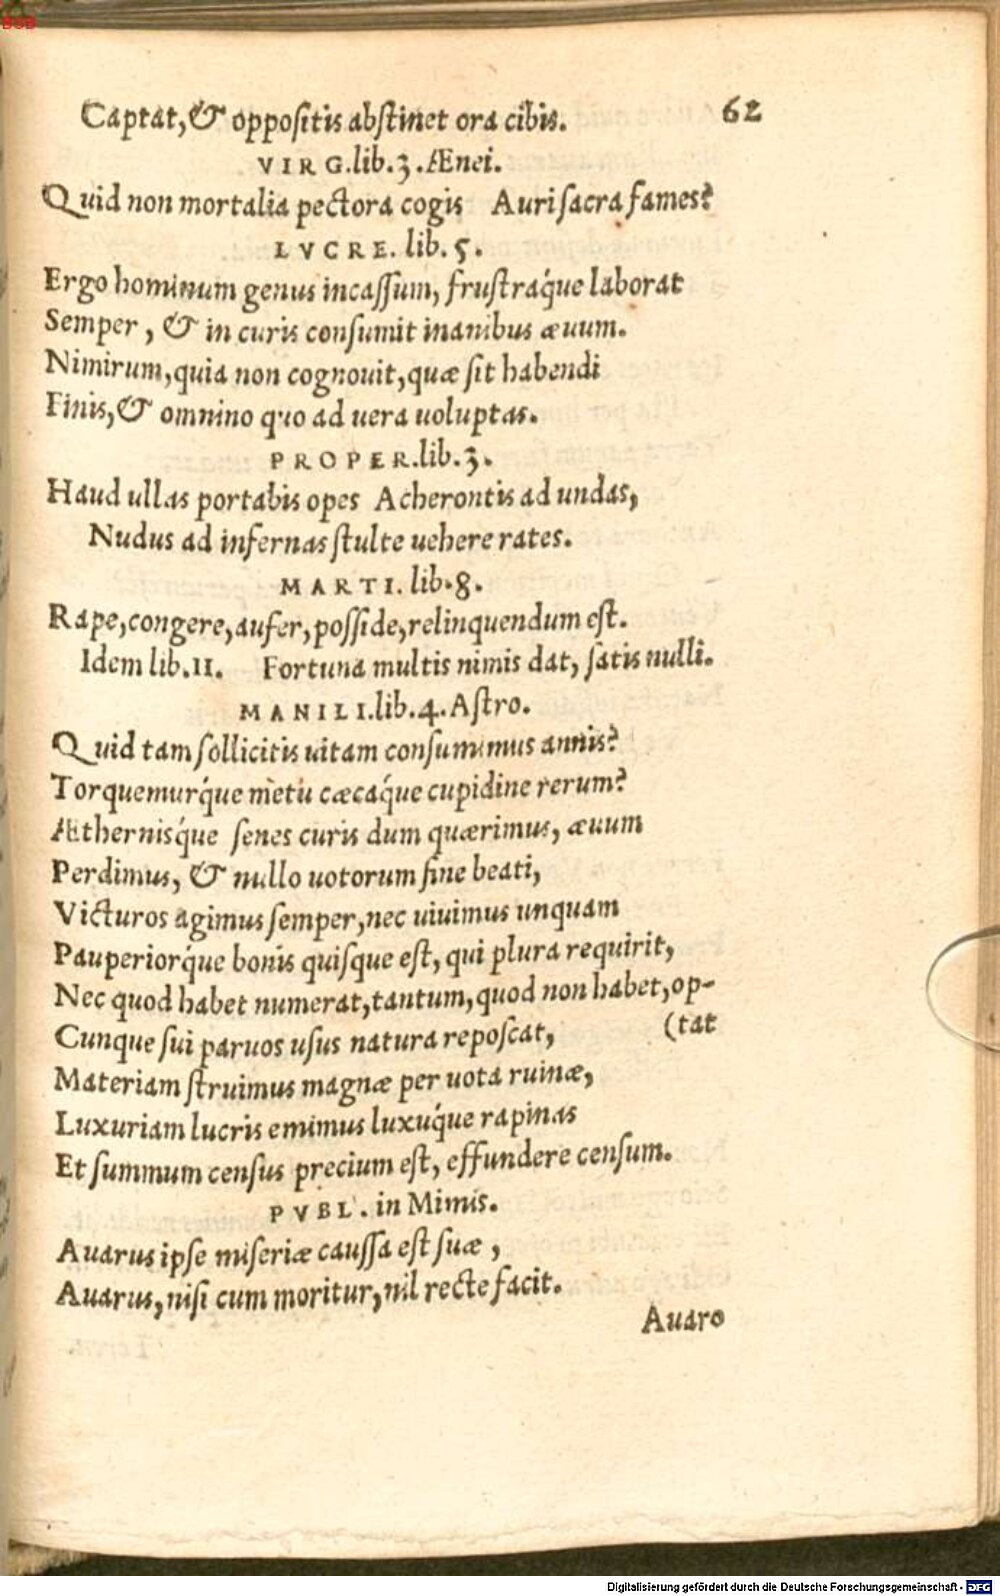 BSB
Captat, & oppositis abstinet ora cibis. 62
VIRG. lib. 3. Ænei.
Quid non mortalia pectora cogis Auri sacra fames?
LVCRE. lib. 5.
Ergo hominum genus incassum, frustráque laborat
Semper, & in curis consumit inanibus æuum.
Nimirum, quia non cognouit, quæ sit habendi
Finis, & omnino quo ad uera uoluptas.
PROPER. lib. 3.
Haud ullas portabis opes Acherontis ad undas,
Nudus ad infernas stulte uehere rates.
MARTI. lib. 8.
Rape, congere, aufer, posside, relinquendum est.
Idem lib. 11. Fortuna multis nimis dat, satis nulli.
MANILI. lib. 4. Astro.
Quid tam sollicitis uitam consumimus annis?
Torquemurq́ue metu cæcáque cupidine rerum?
Æthernisq́ue senes curis dum quærimus, æuum
Perdimus, & nullo uotorum fine beati,
Victuros agimus semper, nec uiuimus unquam
Pauperiorq́ue bonis quisque est, qui plura requirit,
Nec quod habet numerat, tantum, quod non habet, op-
Cunque sui paruos usus natura reposcat, (tat
Materiam struimus magnæ per uota ruinæ,
Luxuriam lucris emimus luxuq́ue rapinas
Et summum census precium est, effundere censum.
PVBL. in Mimis.
Auarus ipse miseriæ caussa est suæ,
Auarus, nisi cum moritur, nil recte facit.
Auaro
Digitalisierung gefördert durch die Deutsche Forschungsgemeinschaft - DFG